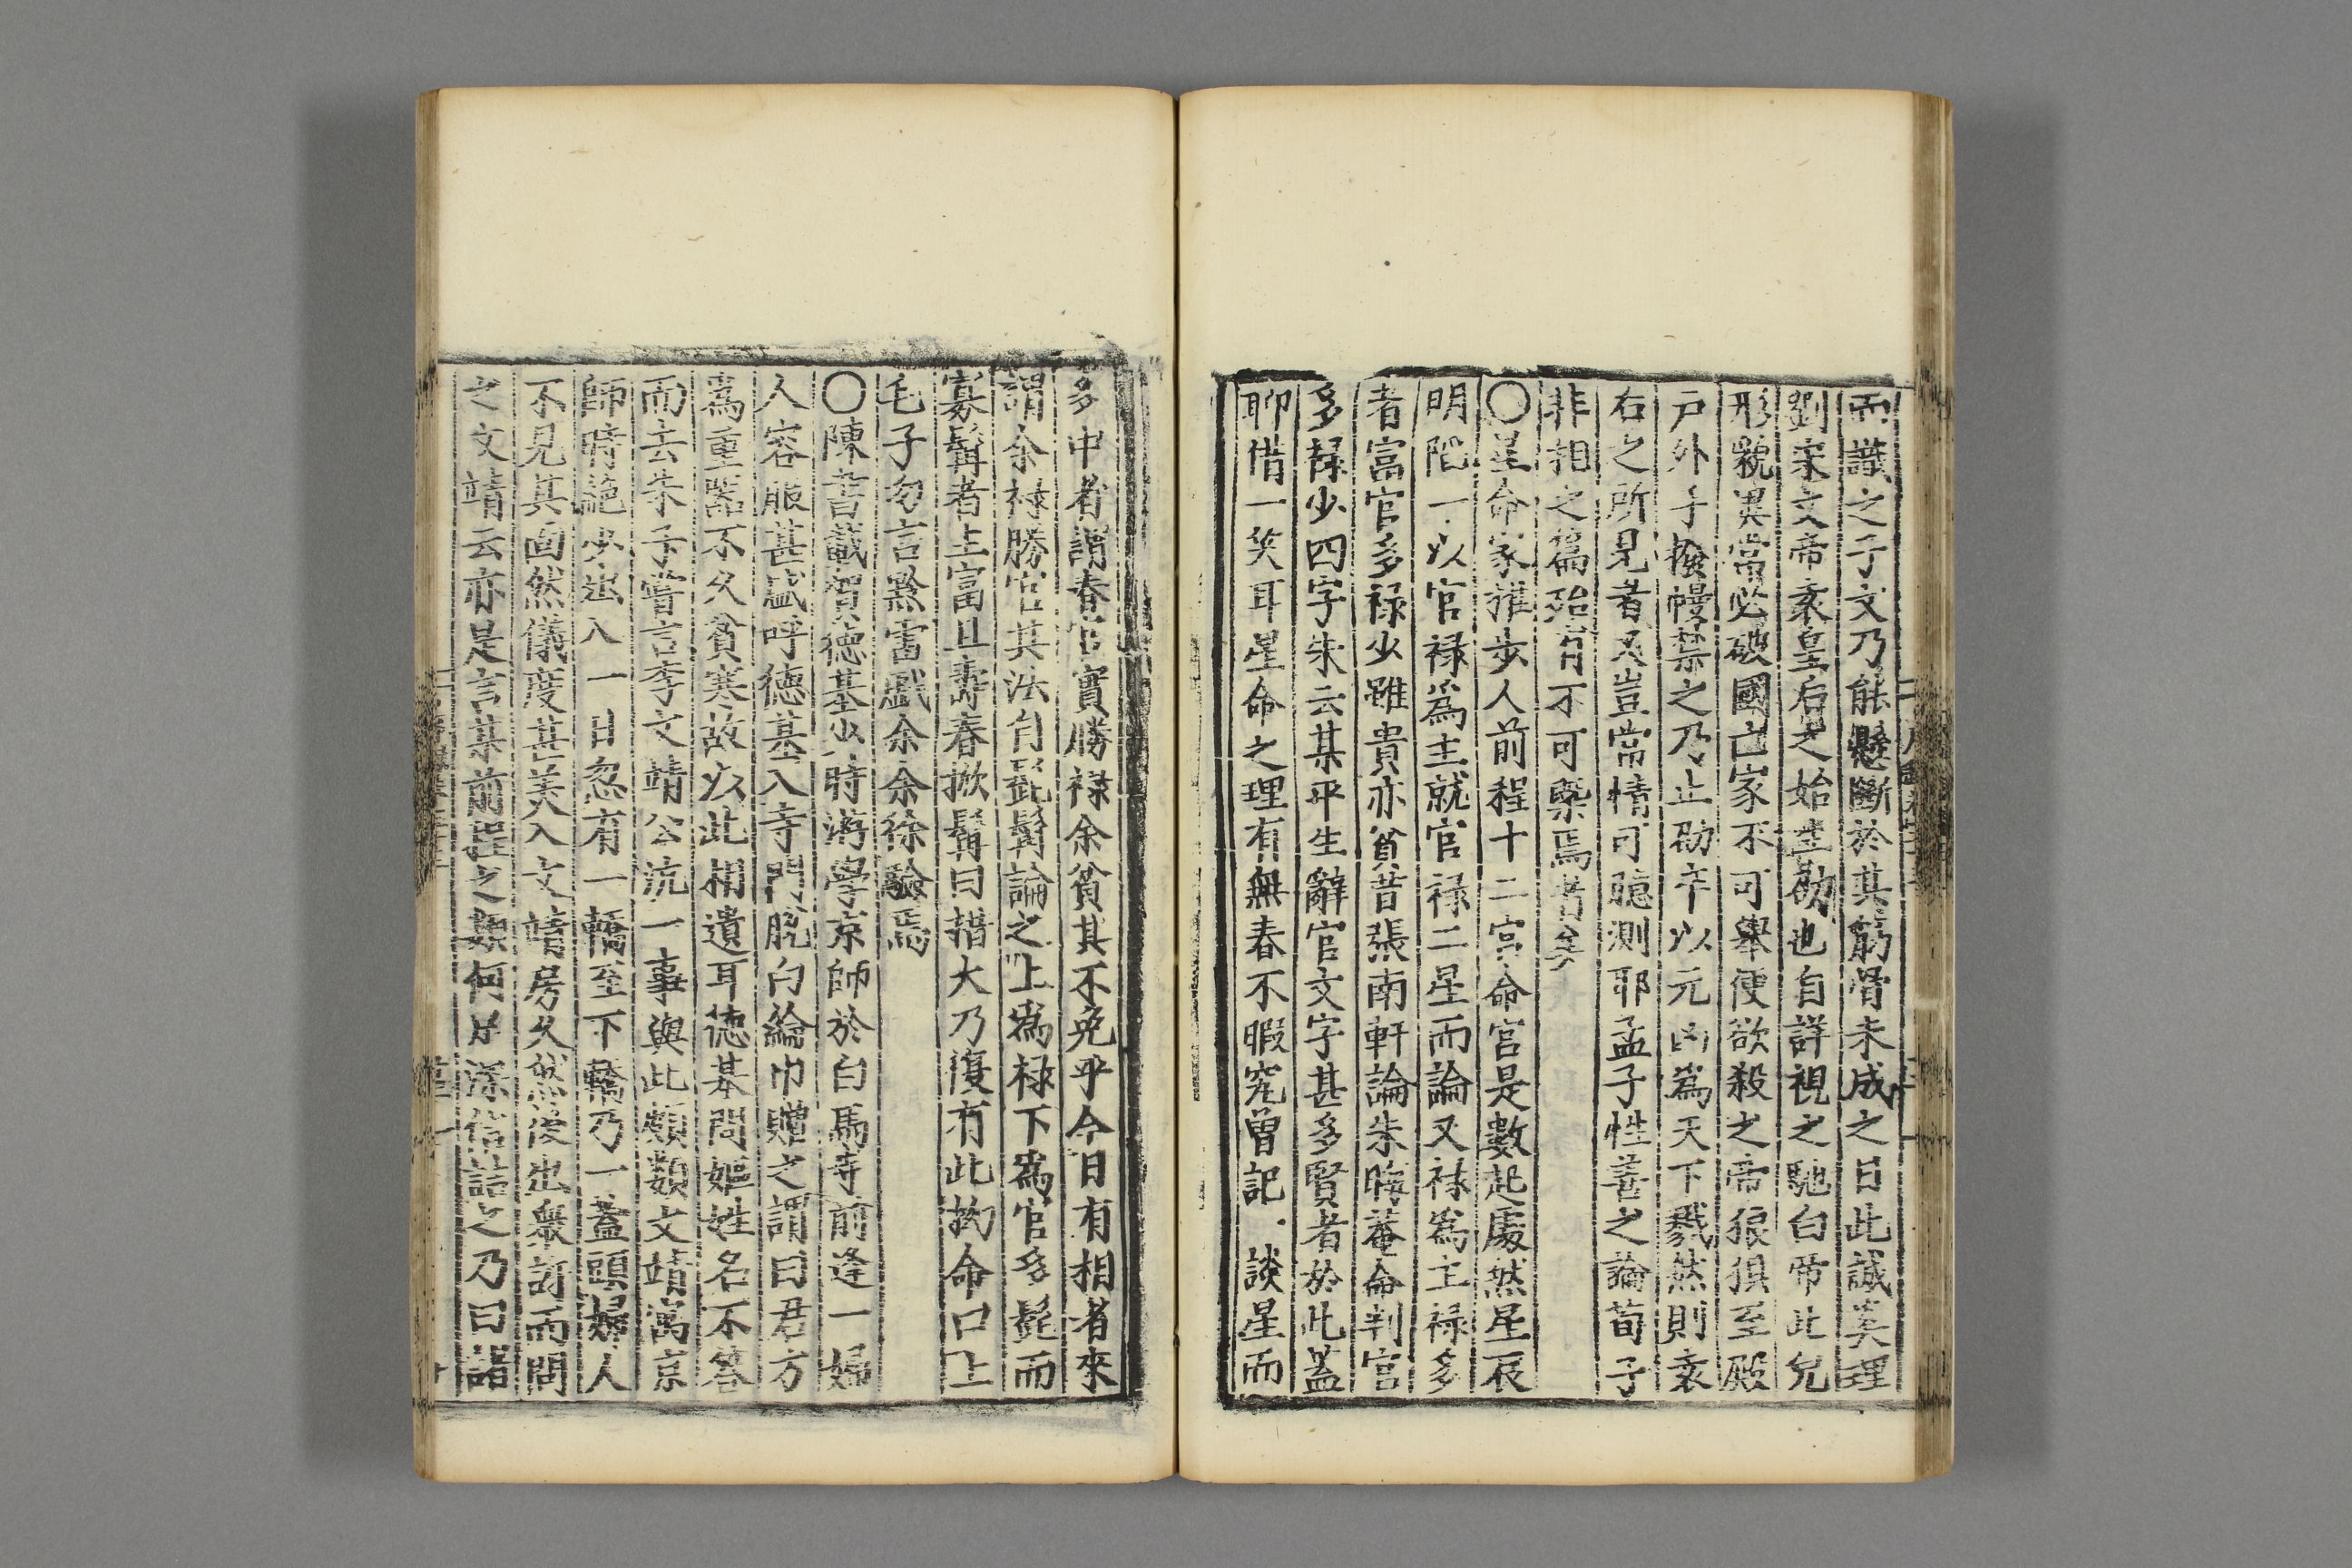 而識之子文乃能懸斷於其筋骨未成之日此誠美理
劉宋文帝袁皇后之始生劭也自詳視之馳白帝此兒
形貌異常必破國亡家不可舉便欲殺之帝狼狽至殿
戶外手撥幔禁之乃止劭卒以元凶爲天下戮然則袁
右之所見者又豈常情可臆測耶孟子性善之論荀子
非相之篇殆有不可槩焉者矣
〇星命家推步人前程十二宮命宮是數起處然星辰
明陷一以官禄爲主就官禄二星而論又禄爲主禄多
者富官多禄少雖貴亦貧昔張南軒論朱晦菴命判官
多禄少四字朱云某平生辭官文字甚多賢者於此蓋
聊借一笑耳星命之理有無春不暇究曽記談星而
多中者謂春官實勝禄余貧其不免乎今日有相者來
謂余禄勝官其法自髭髯論之上爲禄下爲官多髭而
寡髯者主富且壽春掀髯曰措大乃復有此拗命口上
毛子勿言黙當戲余余徐驗焉
〇陳書載賀德基少時游學京師於白馬寺前逢一婦
人容服甚盛呼德基入寺門脫白綸巾贈之謂曰君方
爲重器不久貧寒故以此相遺耳德基問嫗姓名不答
而去朱子嘗言李文靖公流一事與此頗類文靖寓京
師時絶少出入一日忽有一轎至下轎乃一蓋頭婦人
不見其面然儀度甚美入文靖房久然後出衆訝而問
之文靖云亦是言某前程之類何足深信詰之乃曰諸